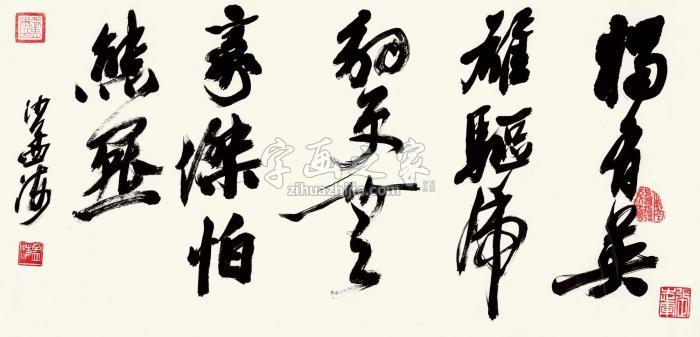 獨有英
雄驅虎
豹更無
豪傑怕
熊羆
沙孟海
字画之家
zihuazhijia.com